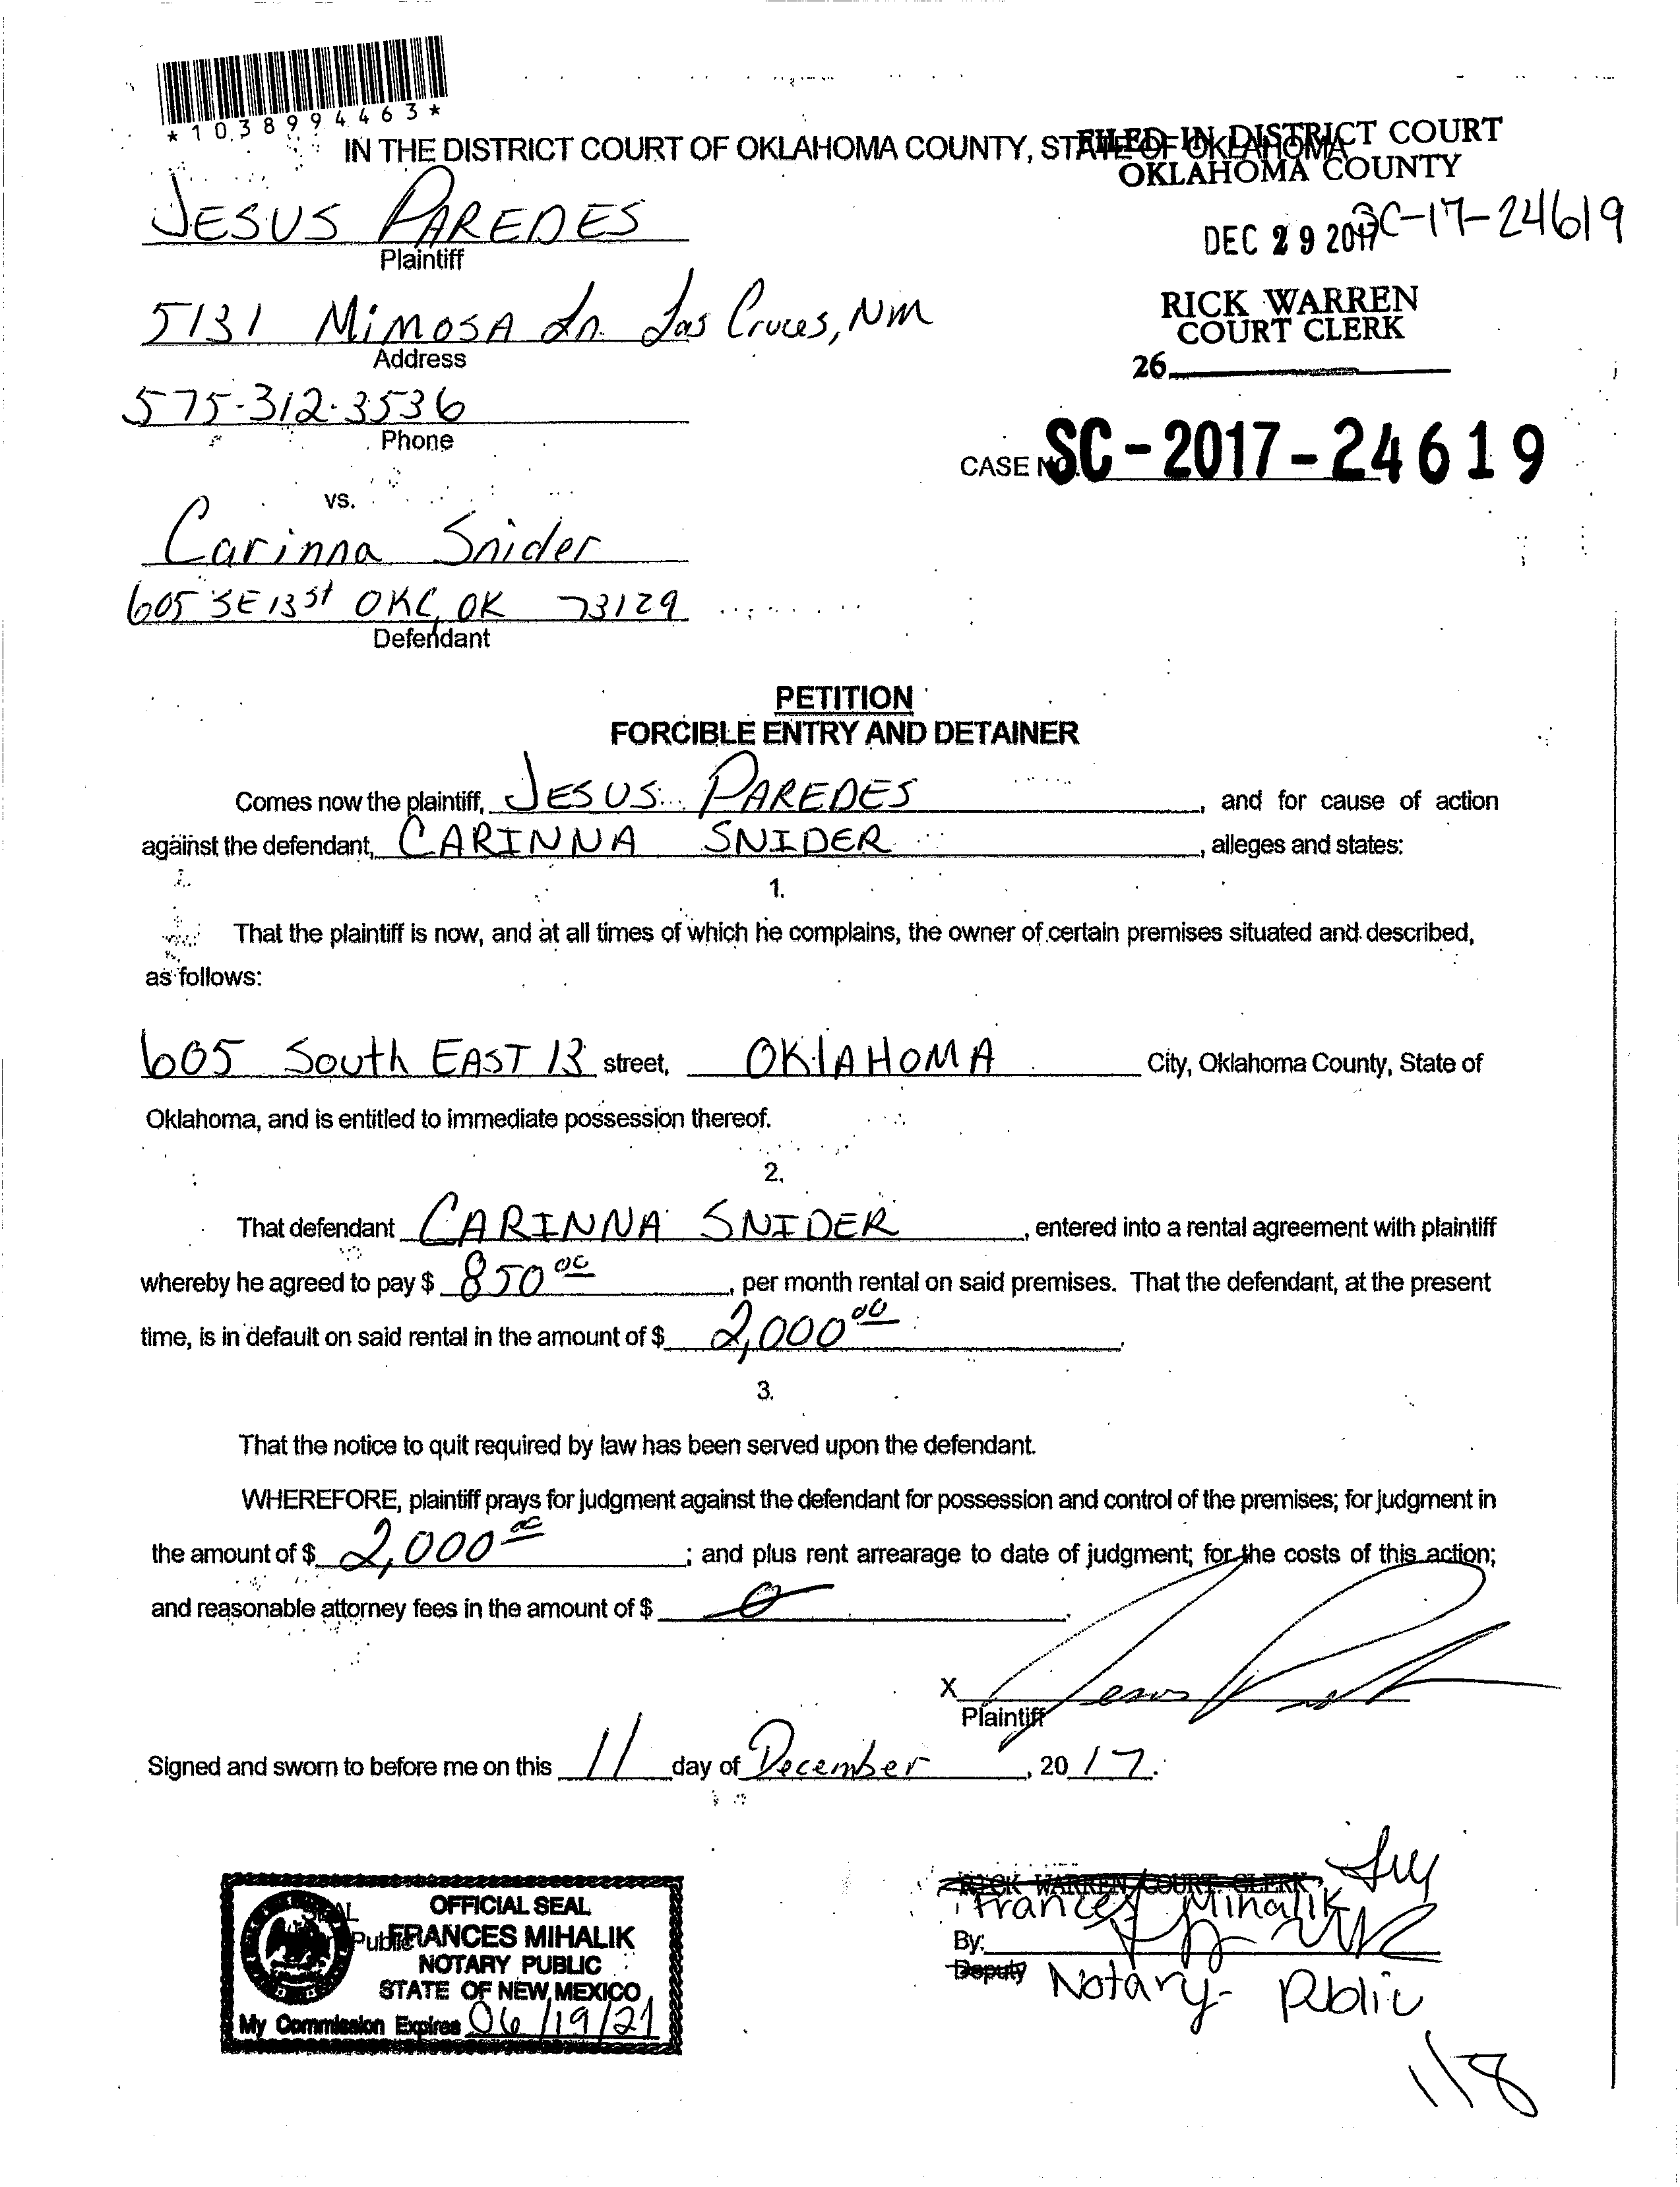 *1038994463*
IN THE DISTRICT COURT OF OKLAHOMA COUNTY, STATE OF OKLAHOMA
FILED IN DISTRICT COURT
OKLAHOMA COUNTY
JESUS PAREDES
Plaintiff
DEC 29 2017
SC-17-24619
5131 MIMOSA Ln. Las Cruces, NM
Address
RICK WARREN
COURT CLERK
26
575-312-3536
Phone
CASE NO. SC-2017-24619
vs.
Carinna Snider
605 SE 13 St OKC, OK 73129
Defendant
PETITION
FORCIBLE ENTRY AND DETAINER
Comes now the plaintiff, JESUS PAREDES, and for cause of action
against the defendant, CARINNA SNIDER, alleges and states:
1.
That the plaintiff is now, and at all times of which he complains, the owner of certain premises situated and described,
as follows:
605 South EAST 13 street, OKlAHOMA City, Oklahoma County, State of
Oklahoma, and is entitled to immediate possession thereof.
2.
That defendant CARINNA SNIDER, entered into a rental agreement with plaintiff
whereby he agreed to pay $ 850 00, per month rental on said premises. That the defendant, at the present
time, is in default on said rental in the amount of $ 2,000 00.
3.
That the notice to quit required by law has been served upon the defendant.
WHEREFORE, plaintiff prays for judgment against the defendant for possession and control of the premises; for judgment in
the amount of $ 2,000 00; and plus rent arrearage to date of judgment; for the costs of this action;
and reasonable attorney fees in the amount of $ 0.
X Jesus
Plaintiff
Signed and sworn to before me on this 11 day of December, 2017.
OFFICIAL SEAL
FRANCES MIHALIK
NOTARY PUBLIC
STATE OF NEW MEXICO
My Commission Expires 06/19/21
RICK WARREN, COURT CLERK
Frances Mihalik
By:
Deputy Notary Public
1/18